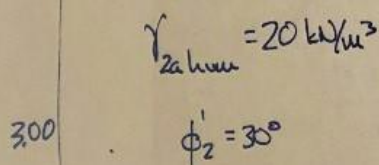 γ2a hum = 20 kN/m³
3,00 ϕ'2 = 30°